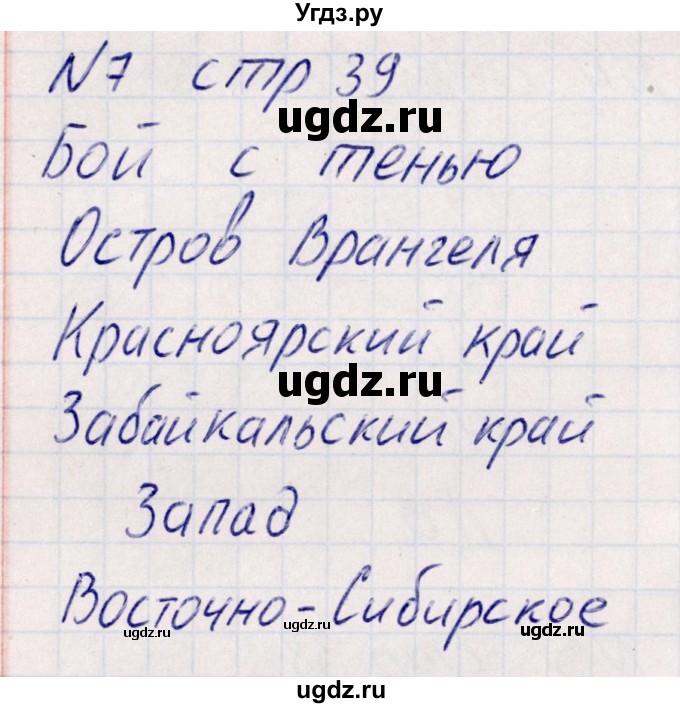 Угдз.ру
N7 стр 39
ugdz.ru
Бой с тенью
Остров Врангеля
Красноярский край
ugdz.ru
Забайкальский край
Запад
Восточно-Сибирское
ugdz.ru ugdz.ru ugdz.ru
ugdz.ru